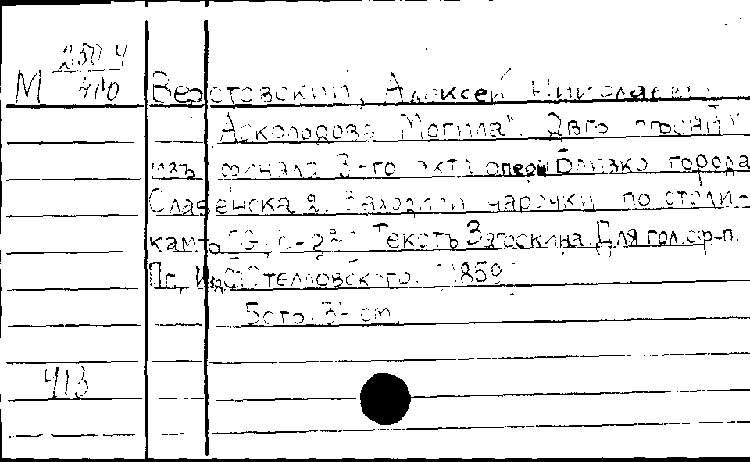 М 250 4/410
Верстовский, Алексей Николаев.
Аскольдова Могила". Две песни
изъ финала 3-го акта оперы Близко города
Славенска 2. Заходили чарочки по столи-
камъ Текстъ Загоскина. Для гол. с ф-п.
Пг, Изд. Стелловского. 1859
5 стр.
413